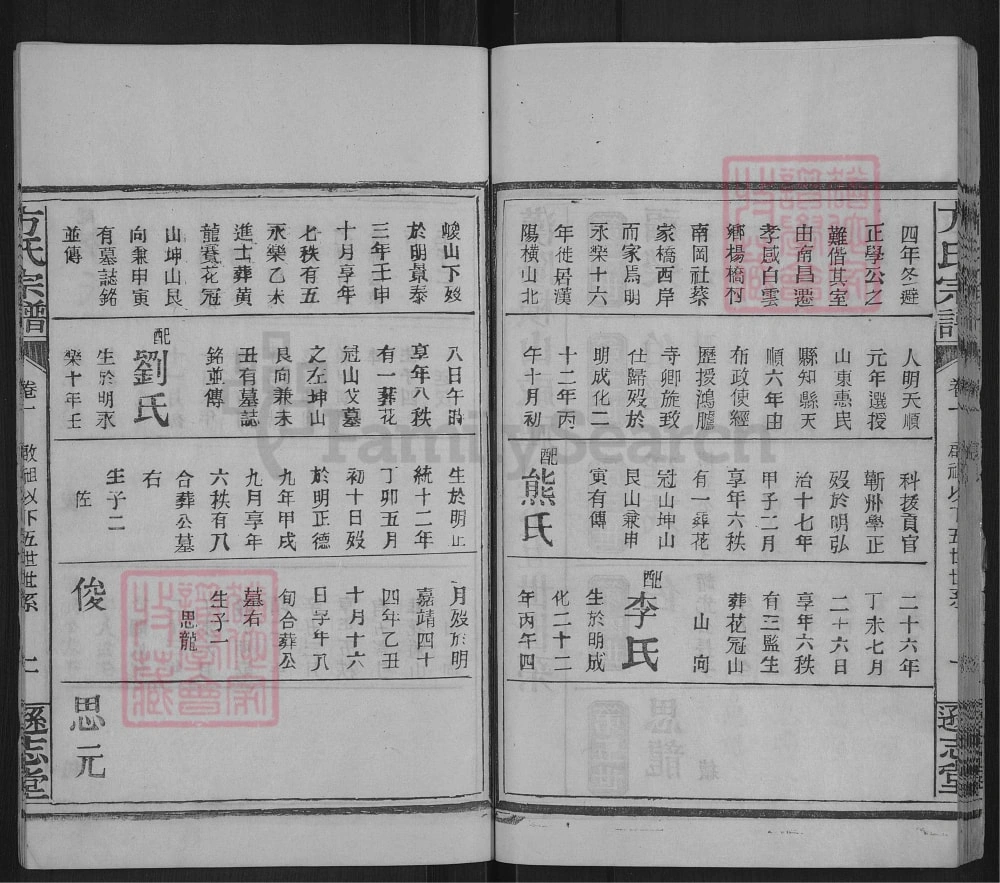 方氏宗譜
卷一
啟祖以下五世世系
一
遜志堂
四年冬避
正學公之
難偕其室
由南昌遷
孝感白雲
鄉楊橋村
南岡社蔡
家橋西岸
而家焉明
永樂十六
年徙居漢
陽橫山北
人明天順
元年選授
山東惠民
縣知縣天
順六年由
布政使經
歷授鴻臚
寺卿旋致
仕歸歿於
明成化二
十二年丙
午十月初
科拔貢官
蘄州學正
歿於明弘
治十七年
甲子二月
享年六秩
有一葬花
冠山坤山
艮山兼申
寅有傳
配熊氏
二十六年
丁未七月
二十六日
享年六秩
有三監生
葬花冠山
山向
配李氏
生於明成
化二十二
年丙午四
峻山下歿
於明景泰
三年壬申
十月享年
七秩有五
永樂乙未
進士葬黃
龍賽花冠
山坤山艮
向兼申寅
有墓誌銘
並傳
八日午時
享年八秩
有一葬花
冠山父墓
之左坤山
艮向兼未
丑有墓誌
銘並傳
配劉氏
生於明永
樂十年壬
生於明正
統十二年
丁卯五月
初十日歿
於明正德
九年甲戌
九月享年
六秩有八
合葬公墓
右
生子二
佐
俊
月歿於明
嘉靖四十
四年乙丑
十月十六
日享年八
旬合葬公
墓右
生子一
思龍
思元
方氏宗譜
卷一
啟祖以下五世世系
二
遜志堂
FamilySearch